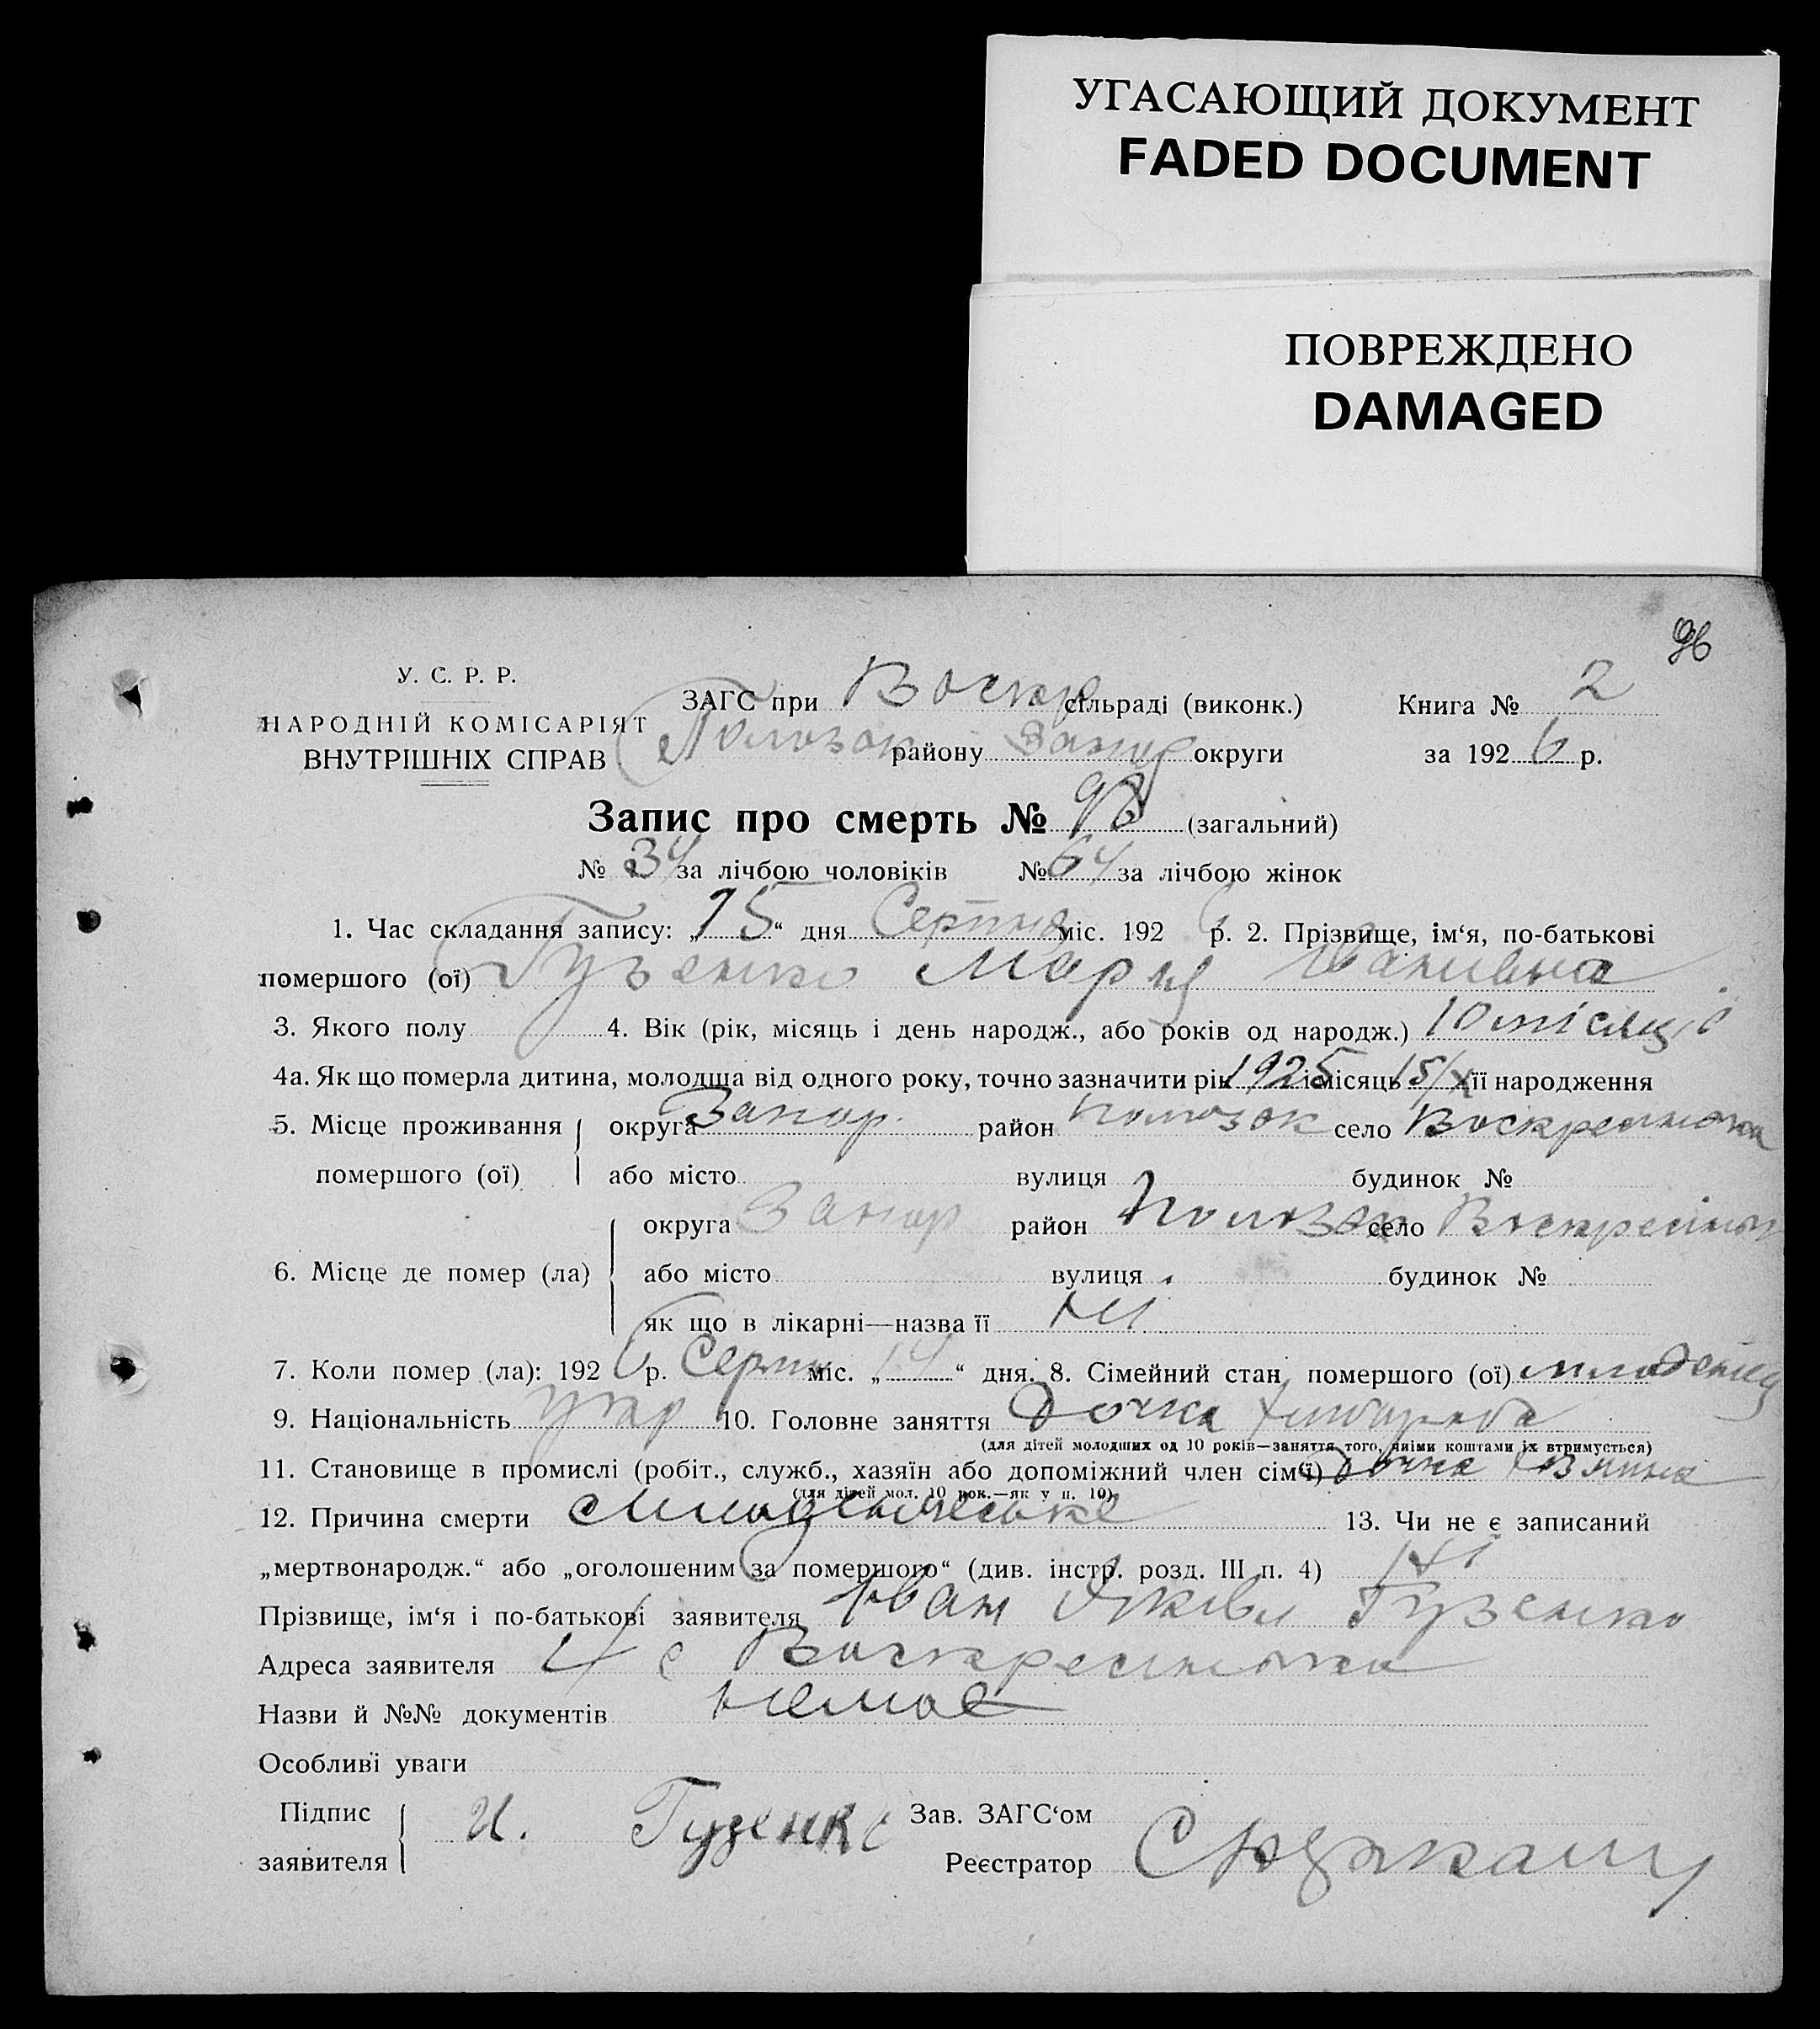 УГАСАЮЩИЙ ДОКУМЕНТ
FADED DOCUMENT
ПОВРЕЖДЕНО
DAMAGED
96
У. С. Р. Р.
НАРОДНІЙ КОМІСАРІЯТ
ВНУТРІШНІХ СПРАВ
ЗАГС при Воскр сільраді (виконк.) Книга № 2
Пологок району Запор округи за 1926 р.
Запис про смерть № 98 (загальний)
№ 34 за лічбою чоловіків № 64 за лічбою жінок
1. Час складання запису: „15“ дня Серпня міс. 1926 р. 2. Прізвище, ім‘я, по-батькові
помершого (ої) Гузенко Мария Иванивна
3. Якого полу 4. Вік (рік, місяць і день народж., або років од народж.) 10 місяці
4а. Як що померла дитина, молодща від одного року, точно зазначити рік 1925 і місяць 15/X її народження
5. Місце проживання округа Запор. район село Воскресенька
помершого (ої) або місто вулиця будинок №
округа Запор район село
6. Місце де помер (ла) або місто вулиця будинок №
як що в лікарні—назва її Ні
7. Коли помер (ла): 1926 р. Серпн міс. „14“ дня. 8. Сімейний стан помершого (ої)
9. Національність укр 10. Головне заняття Дочка хлібороба
(для дітей молодших од 10 років—заняття того, чиїми коштами їх втримується)
11. Становище в промислі (робіт., служб., хазяїн або допоміжний член сім‘ї) Дочка
(для дітей мол. 10 рок.—як у п. 10)
12. Причина смерти 13. Чи не є записаний
„мертвонародж.“ або „оголошеним за помершого“ (див. інстр. розд. III п. 4) Ні
Прізвище, ім‘я і по-батькові заявителя Іван Яковл Гузенко
Адреса заявителя с Воскресенька
Назви й №№ документів Немає
Особливі уваги
Підпис заявителя И. Гузенко Зав. ЗАГС‘ом
Реєстратор